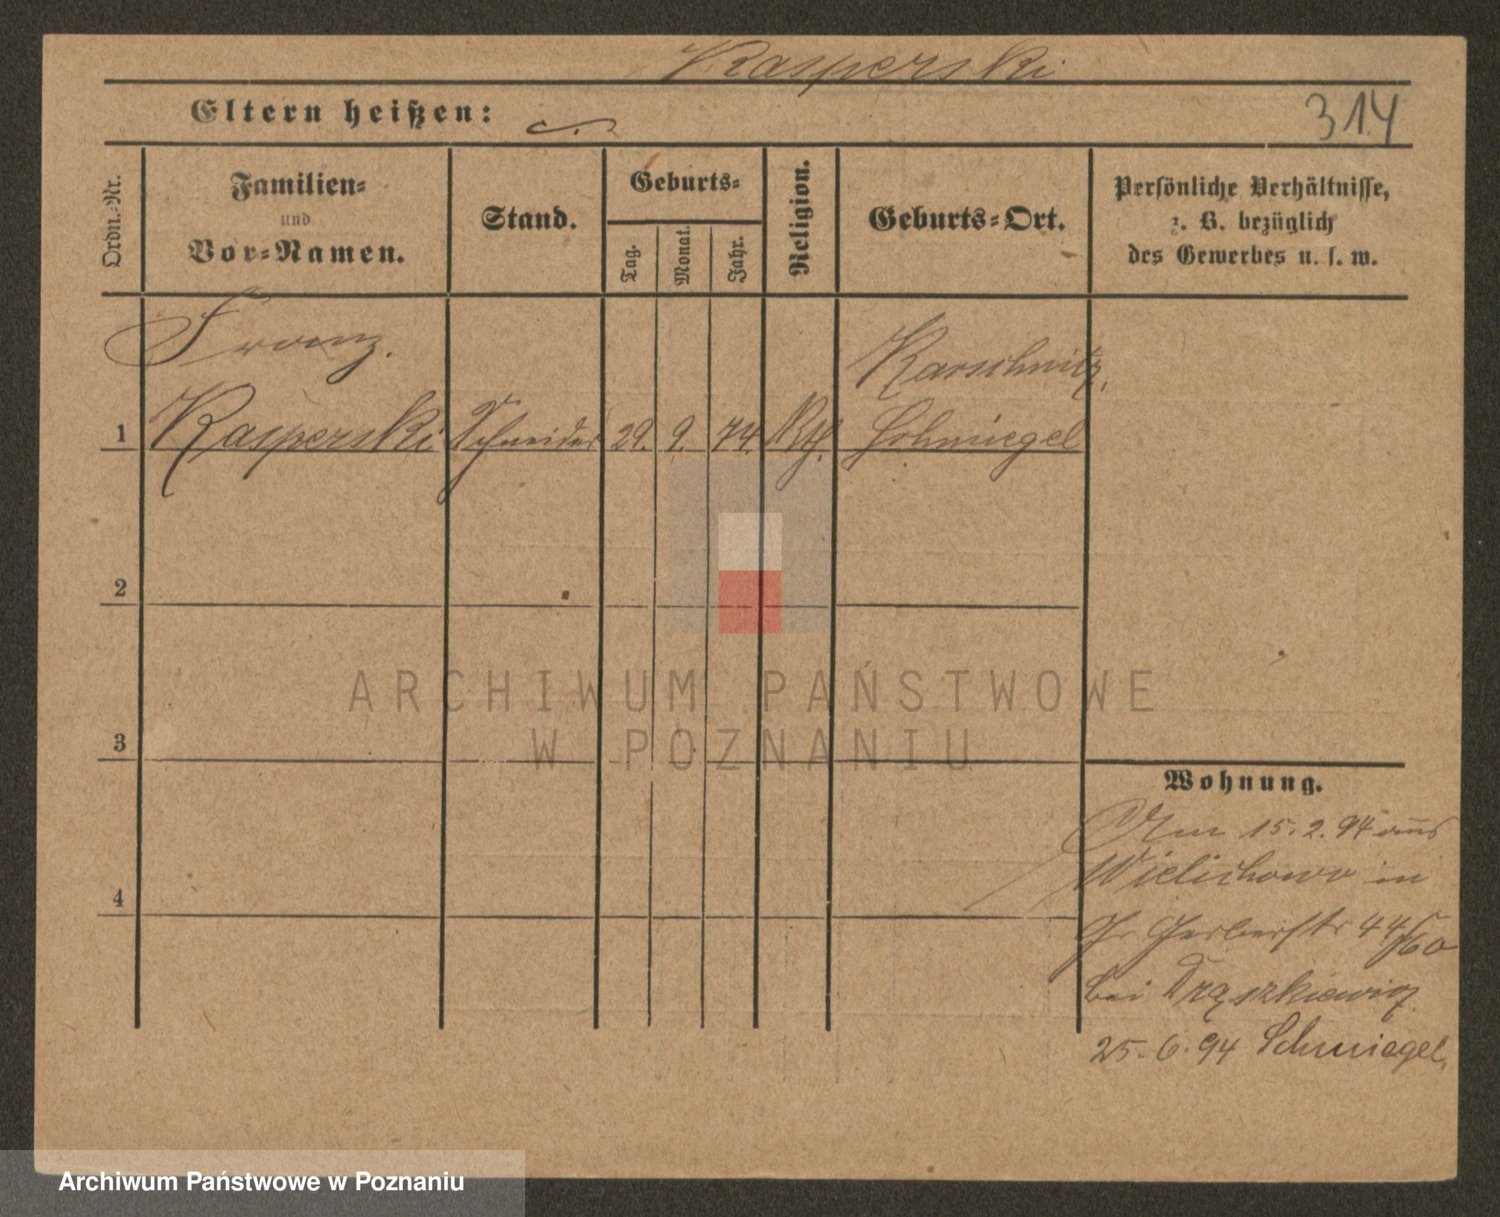 Kasperski
Eltern heißen:
314
Ordn.-Nr.
Familien-
und
Vor-Namen.
Stand.
Geburts-
Tag.
Monat.
Jahr.
Religion.
Geburts-Ort.
Persönliche Verhältnisse,
z. B. bezüglich
des Gewerbes u. s. w.
Franz.
Karschwitz,
1 Kasperski Schneider 29. 9. 74. Kth. Schmiegel
2
3
4
ARCHIWUM PAŃSTWOWE
W POZNANIU
Wohnung.
Am 15.2.94 aus
Wielichowo in
Gr Gerberstr 44/60
bei Drązkiewicz
25.6.94 Schmiegel.
Archiwum Państwowe w Poznaniu